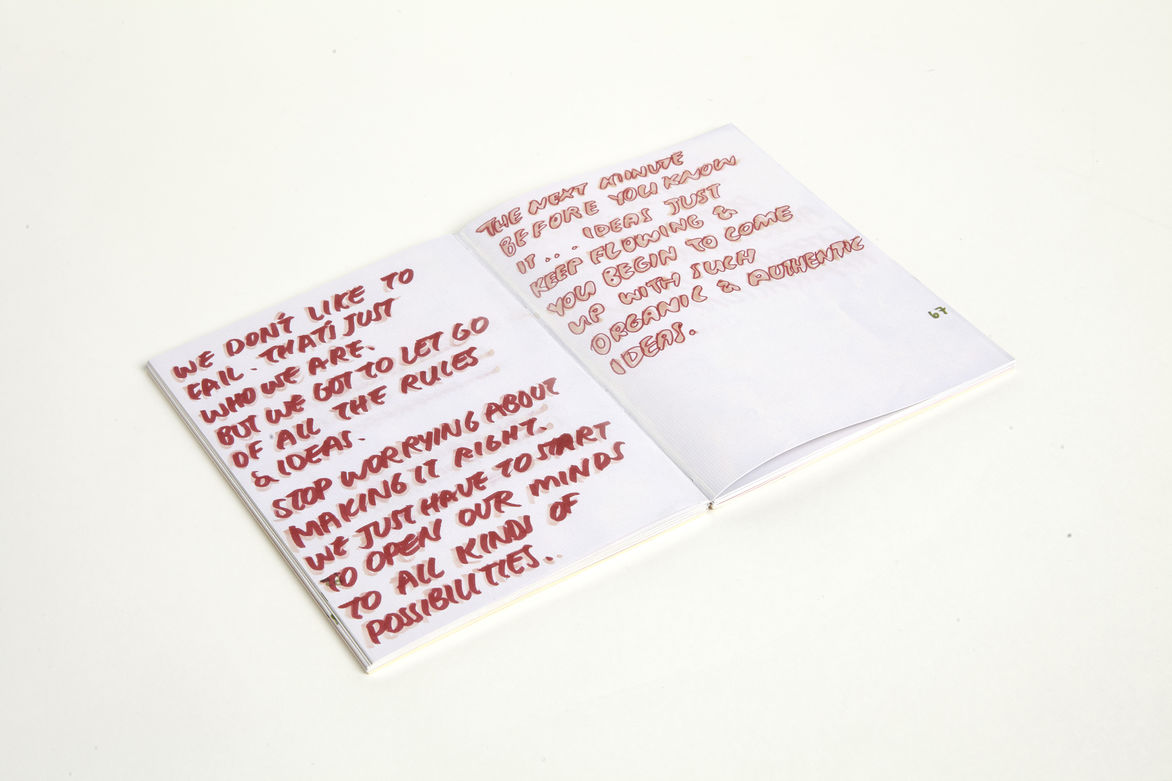 WE DON'T LIKE TO
FAIL. THAT'S JUST
WHO WE ARE.
BUT WE GOT TO LET GO
OF ALL THE RULES
& IDEAS.
STOP WORRYING ABOUT
MAKING IT RIGHT.
WE JUST HAVE TO START
TO OPEN OUR MINDS
TO ALL KINDS OF
POSSIBILITIES..
THE NEXT MINUTE
BEFORE YOU KNOW
IT... IDEAS JUST
KEEP FLOWING &
YOU BEGIN TO COME
UP WITH SUCH
ORGANIC & AUTHENTIC
IDEAS.
67